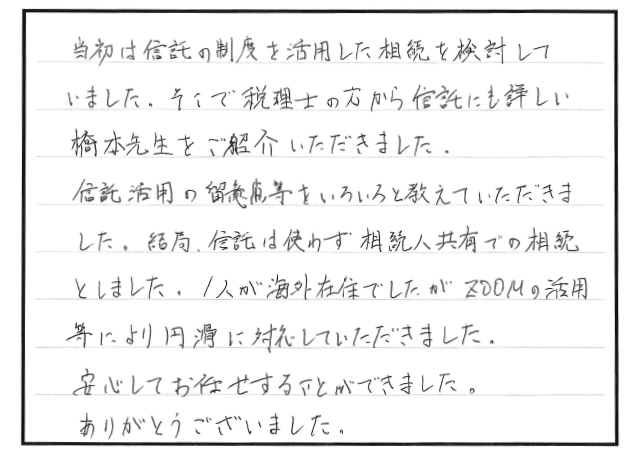 当初は信託の制度を活用した相続を検討して
いました。そこで税理士の方から信託にも詳しい
橋本先生をご紹介いただきました。
信託活用の留意点等をいろいろと教えていただきま
した。結局、信託は使わず相続人共有での相続
としました。1人が海外在住でしたがZOOMの活用
等により円滑に対応していただきました。
安心してお任せすることができました。
ありがとうございました。